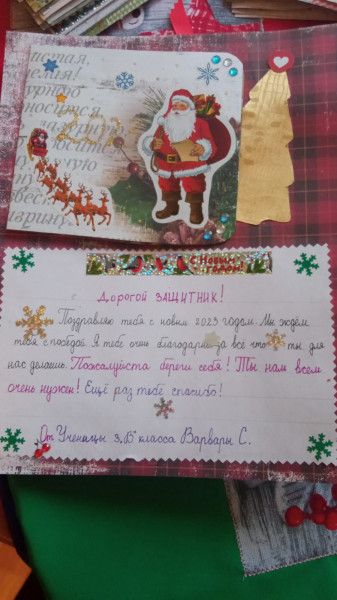 С Новым
годом!
Дорогой защитник!
Поздравляю тебя с новым 2023 годом. Мы ждём
тебя с победой. Я тебе очень благодарна за всё что ты для
нас делаешь. Пожалуйста береги себя! Ты нам всем
очень нужен! Ещё раз тебе спасибо!
От Ученицы 3 „В" класса Варвары С.